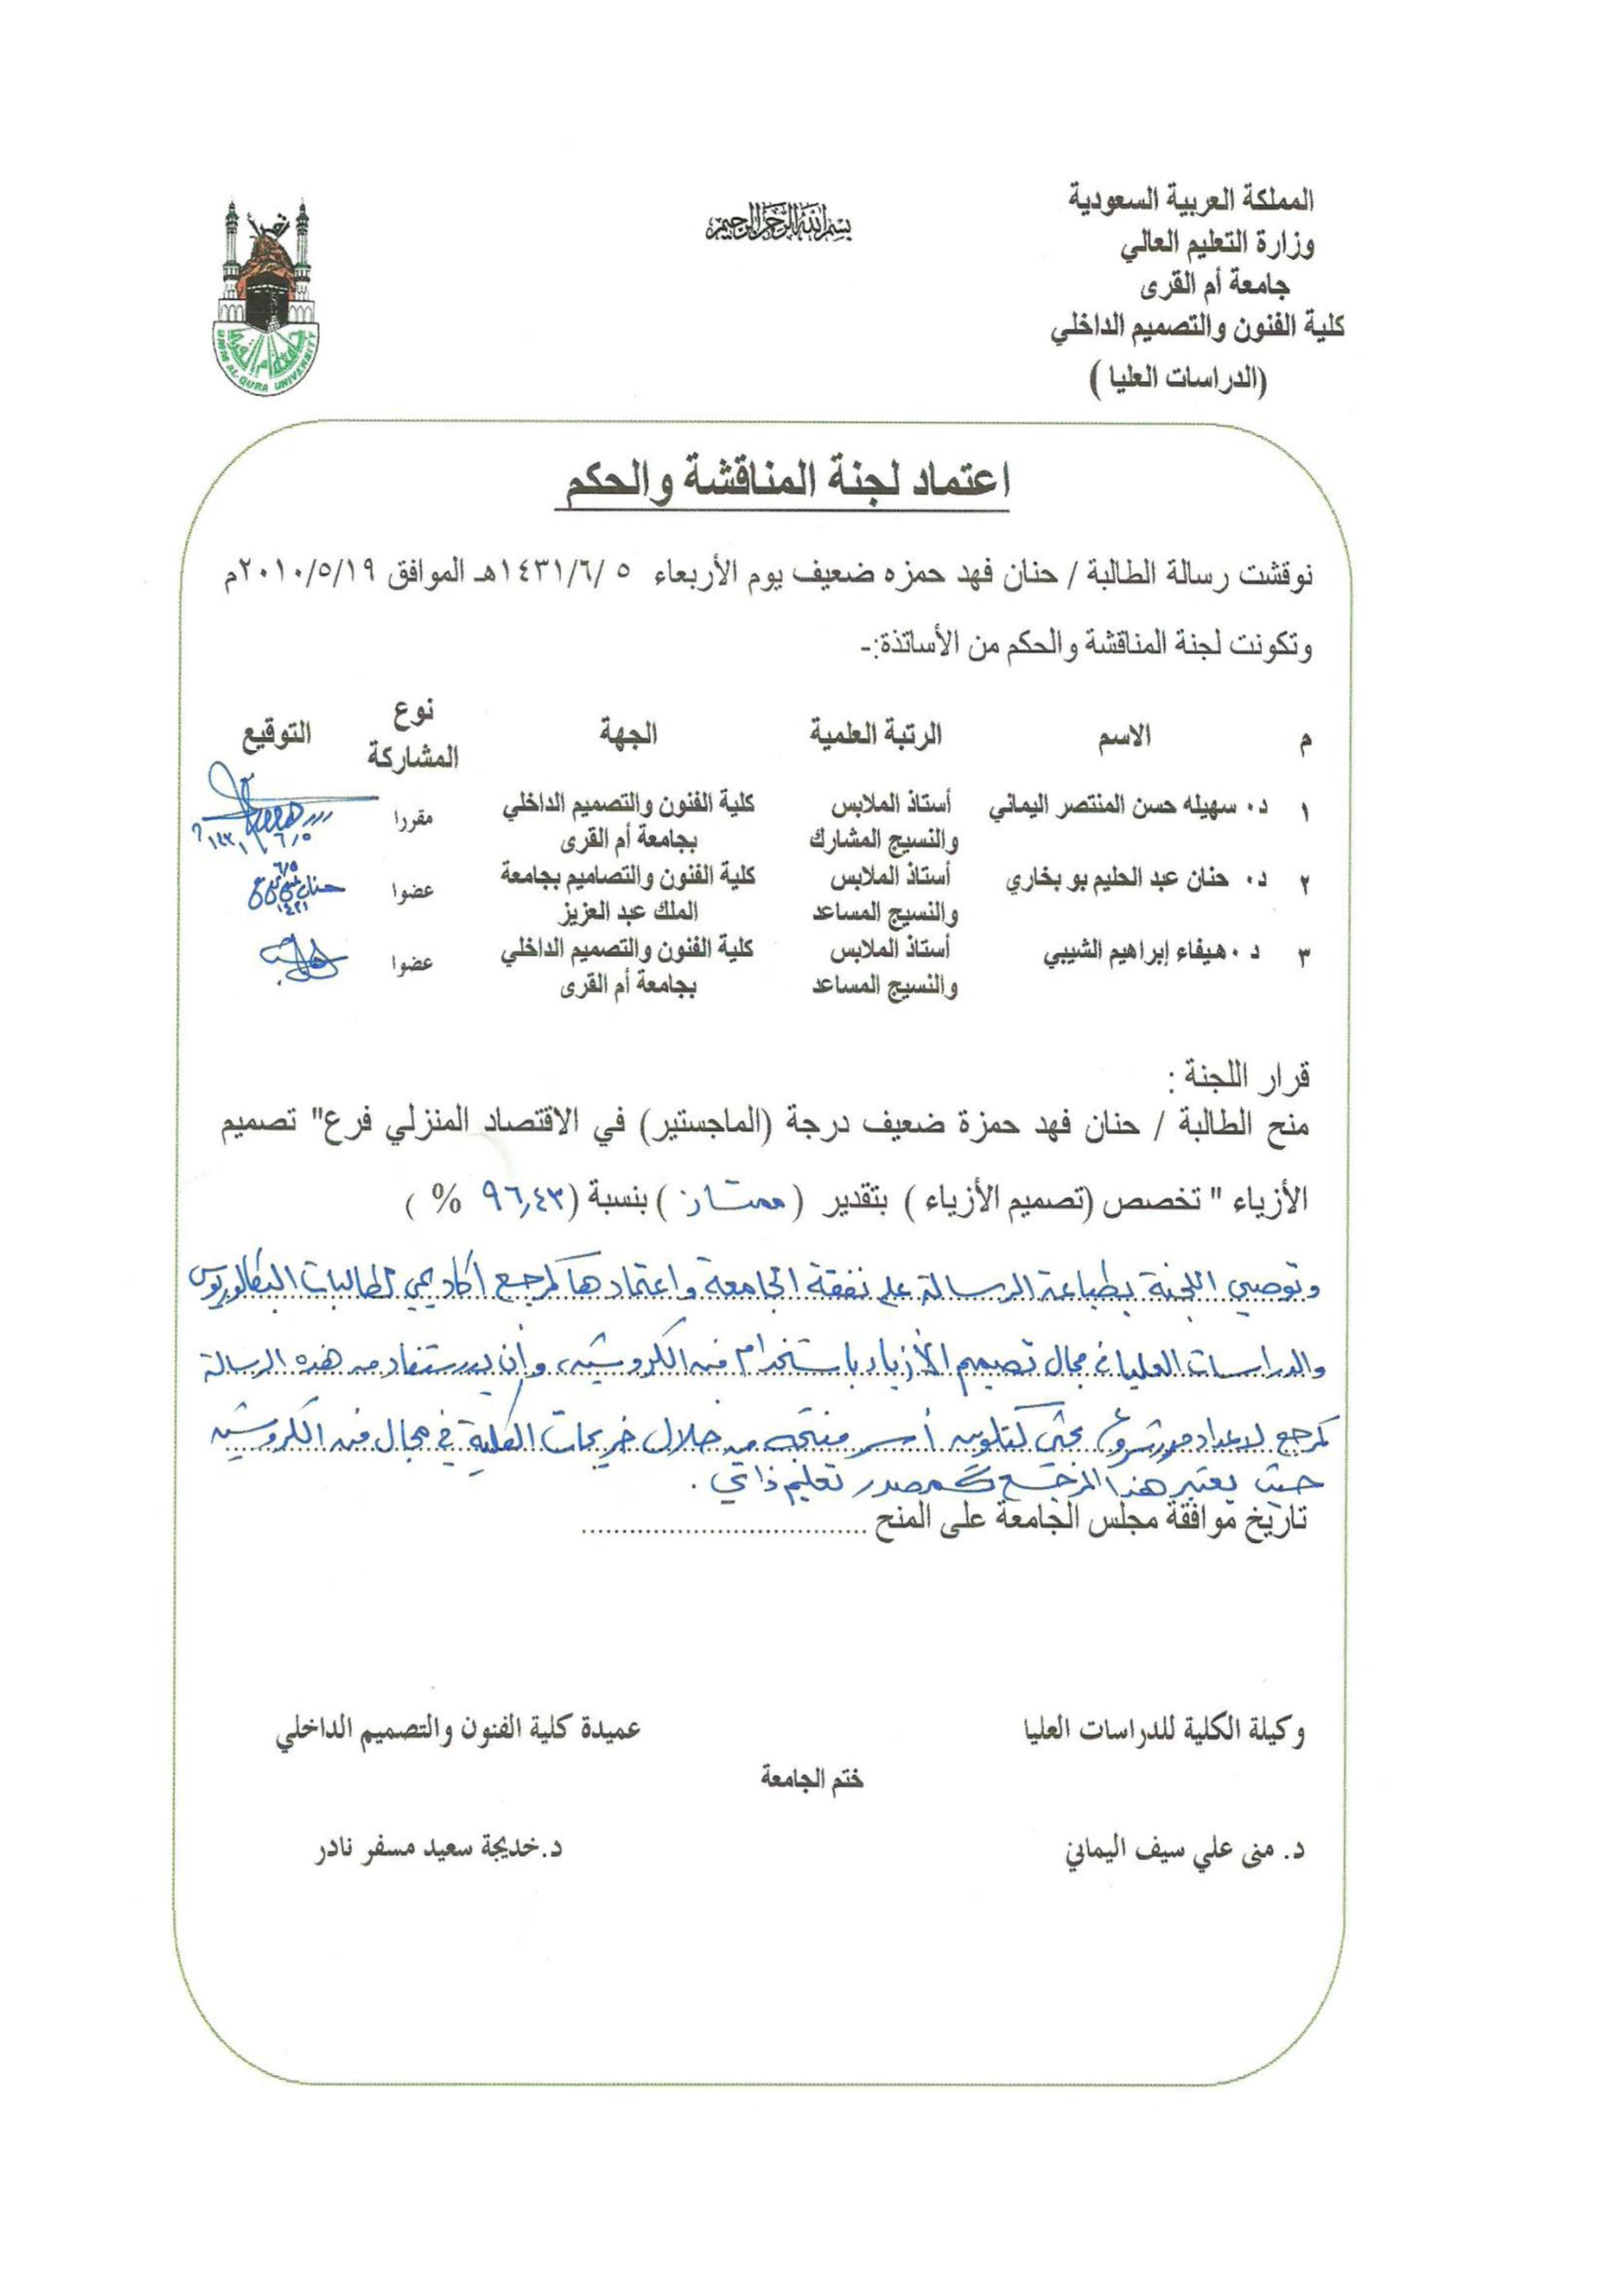 المملكة العربية السعودية
وزارة التعليم العالي
جامعة أم القرى
كلية الفنون والتصميم الداخلي
(الدراسات العليا )
بسم الله الرحمن الرحيم
جامعة أم القرى
UMM AL-QURA UNIVERSITY
اعتماد لجنة المناقشة والحكم
نوقشت رسالة الطالبة / حنان فهد حمزه ضعيف يوم الأربعاء ٥ /١٤٣١/٦هـ الموافق ٢٠١٠/٥/١٩م
وتكونت لجنة المناقشة والحكم من الأساتذة:-
م الاسم الرتبة العلمية الجهة نوع المشاركة التوقيع
١ د٠ سهيله حسن المنتصر اليماني أستاذ الملابس كلية الفنون والتصميم الداخلي مقررا
والنسيج المشارك بجامعة أم القرى
٢ د٠ حنان عبد الحليم بو بخاري أستاذ الملابس كلية الفنون والتصاميم بجامعة عضوا
والنسيج المساعد الملك عبد العزيز
٣ د ٠هيفاء إبراهيم الشيبي أستاذ الملابس كلية الفنون والتصميم الداخلي عضوا
والنسيج المساعد بجامعة أم القرى
قرار اللجنة :
منح الطالبة / حنان فهد حمزة ضعيف درجة (الماجستير) في الاقتصاد المنزلي فرع" تصميم
الأزياء " تخصص (تصميم الأزياء ) بتقدير ( ممتاز ) بنسبة (٩٦,٤٣ % )
وتوصي اللجنة بطباعة الرسالة على نفقة الجامعة واعتمادها كمرجع أكاديمي لطالبات البكالوريوس
والدراسات العليا في مجال تصميم الأزياء باستخدام فن الكروشيه، وأن يستفاد من هذه الرسالة
كمرجع لإعداد مشروع بحثي لتكوين أسر منتجه من خلال خريجات الكلية في مجال فن الكروشيه
حيث يعتبر هذا المرجع كمصدر تعليم ذاتي .
تاريخ موافقة مجلس الجامعة على المنح ...................................
وكيلة الكلية للدراسات العليا عميدة كلية الفنون والتصميم الداخلي
ختم الجامعة
د. منى علي سيف اليماني د.خديجة سعيد مسفر نادر